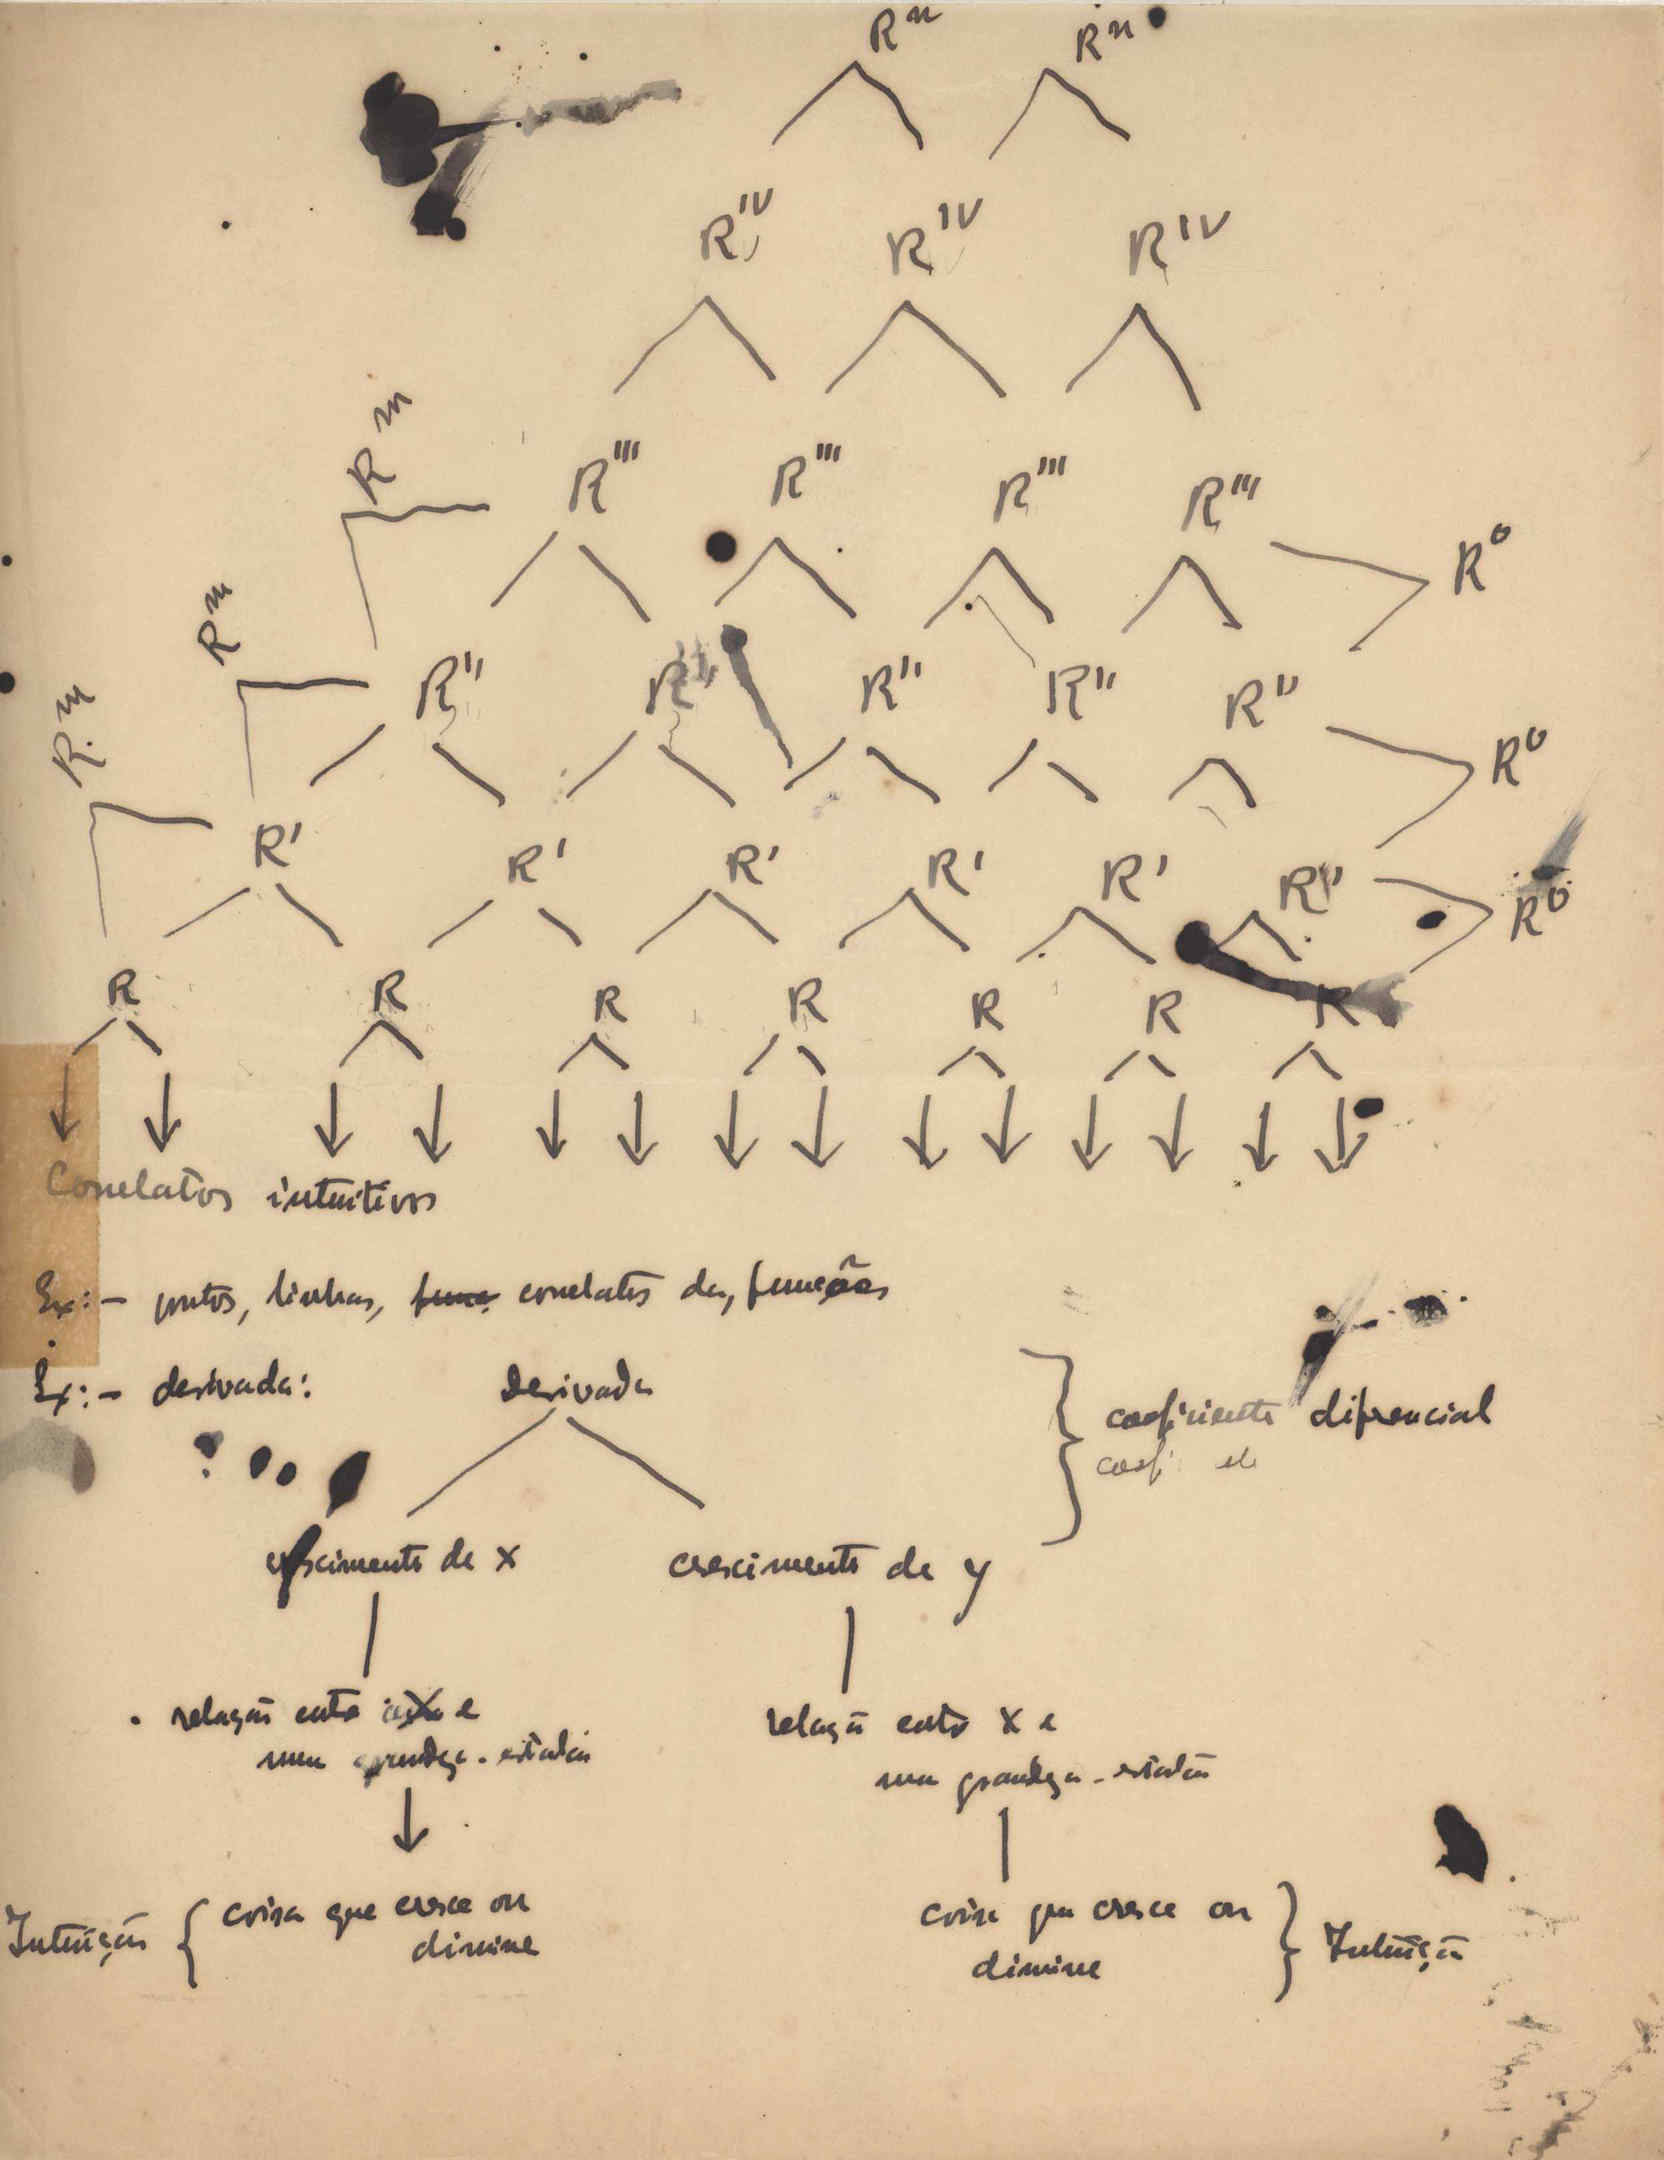 Rⁿ Rⁿ
R^IV R^IV R^IV
R^m R''' R''' R''' R''' R⁰
R^m R'' R'' R'' R'' R'' R⁰
R^m R' R' R' R' R' R'' R⁰
R R R R R R R
Correlatos intuitivos
Ex:- pontos, linhas, correlatos das funções
Ex:- derivada: Derivada
coeficiente diferencial
coef
crescimento de x crescimento de y
relação entre x e relação entre x e
uma grandeza-estalão uma grandeza-estalão
Intuição { coisa que cresce ou coisa que cresce ou } Intuição
diminue diminue